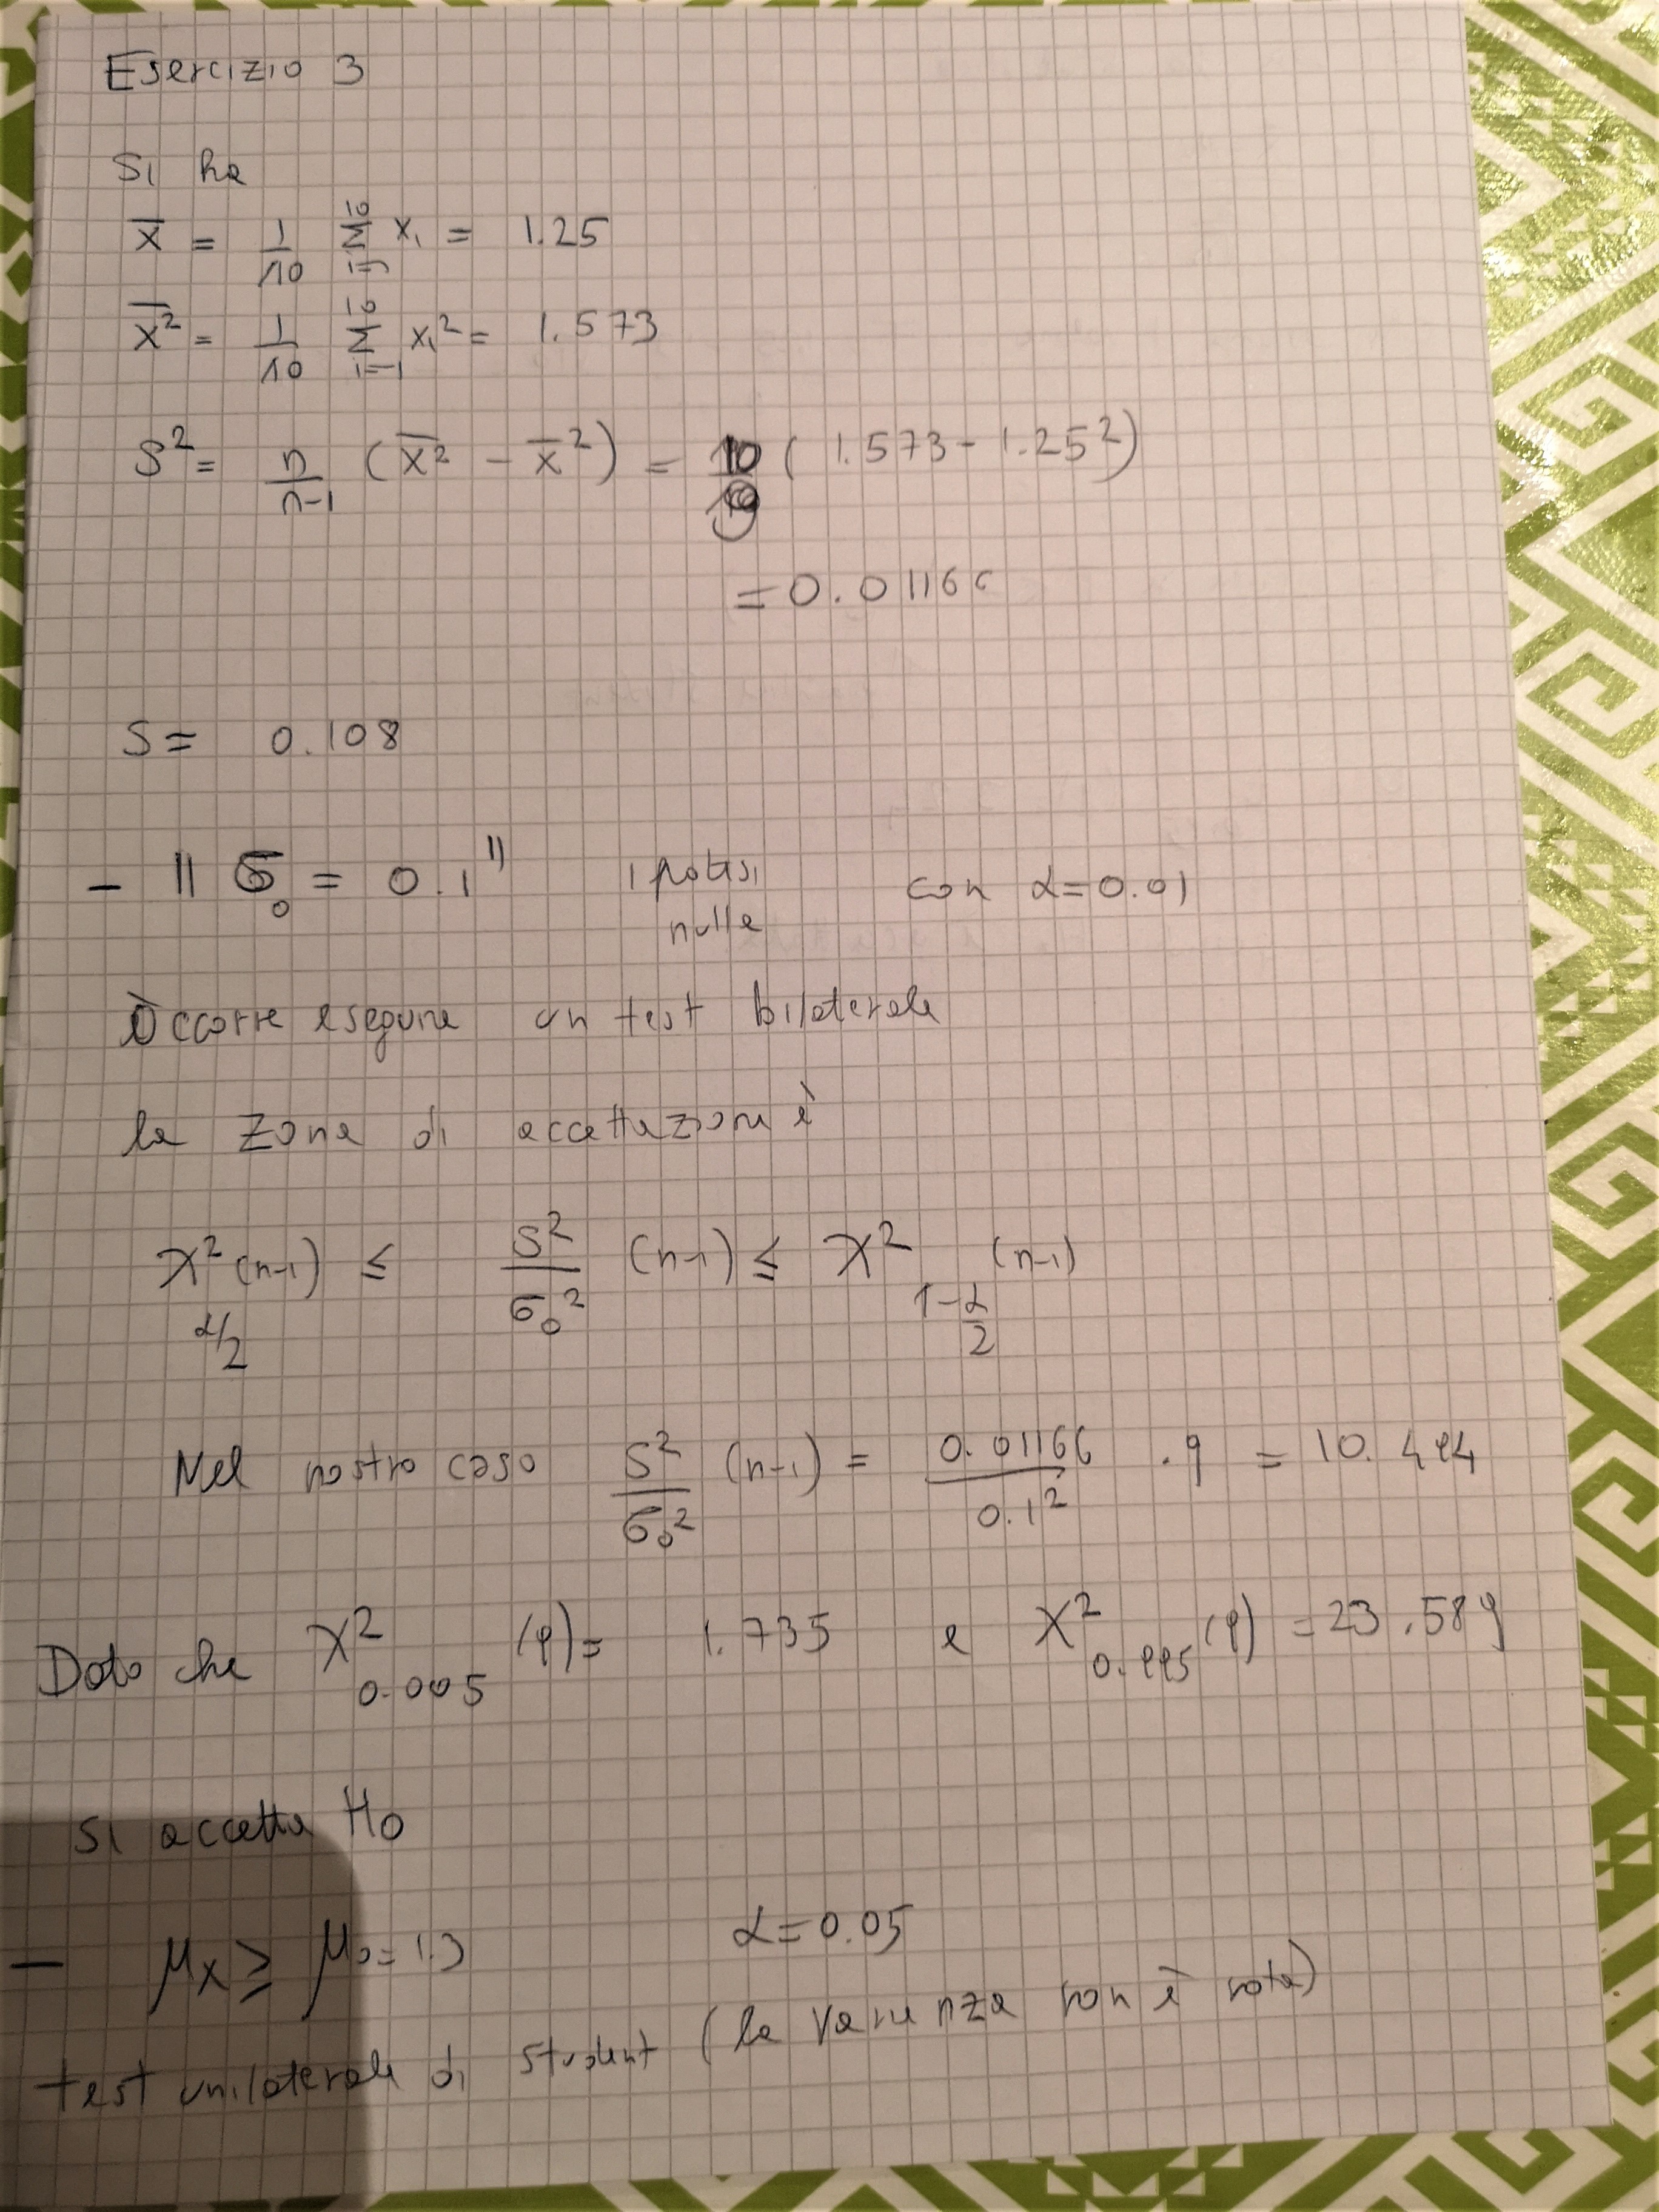 Esercizio 3
Si ha
x̄ = 1/10 Σ_{i=1}^{10} x_i = 1.25
x̄² = 1/10 Σ_{i=1}^{10} x_i² = 1.573
S² = n/(n-1) (x̄² - x̄²) = 10/9 (1.573 - 1.25²)
= 0.01166
S = 0.108
- "σ_0 = 0.1" ipotesi nulla con α=0.01
Occorre eseguire un test bilaterale
la zona di accettazione è
χ²_{α/2} (n-1) ≤ S²/σ_0² (n-1) ≤ χ²_{1-α/2} (n-1)
Nel nostro caso S²/σ_0² (n-1) = 0.01166/0.1² · 9 = 10.494
Dato che χ²_{0.005} (9) = 1.735 e χ²_{0.995} (9) = 23.589
si accetta H0
- μ_x ≥ μ_0 = 1.3 α=0.05
test unilaterale di student (la varianza non è nota)